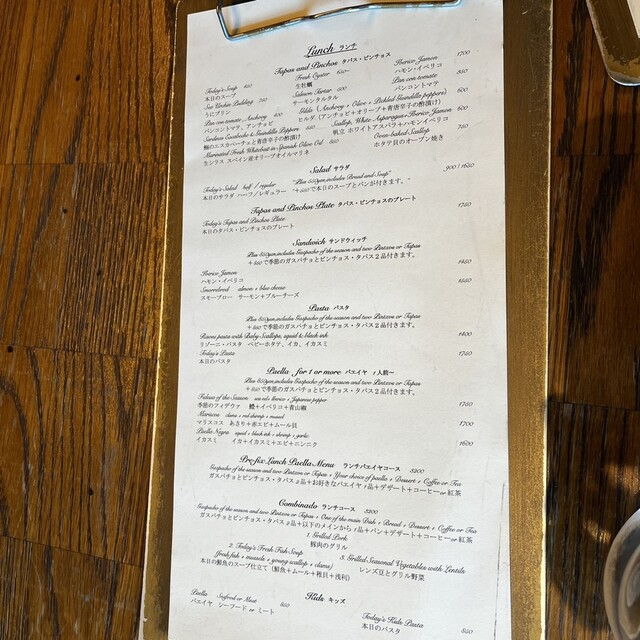 Lunch ランチ
Tapas and Pinchos タパス・ピンチョス
Today's Soup
本日のスープ
Sea Urchin Pudding
うにプリン
Pan con tomate Anchovy
パンコントマテ、アンチョビ
Sardine Escabeche & Guindilla Peppers
鰯のエスカベーチェと青唐辛子の酢漬け
Marinated Fresh Whitebait in Spanish Olive Oil
生シラス スペイン産オリーブオイルマリネ
Fresh Oyster
生牡蠣
Salmon Tartar
サーモンタルタル
Gilda (Anchovy + Olive + Pickled Guindilla peppers) 600
ヒルダ (アンチョビ+オリーブ+青唐辛子の酢漬け)
Scallop, White Asparagus+Iberico Jamon 600
帆立 ホワイトアスパラ+ハモンイベリコ
Oven-baked Scallop 750
ホタテ貝のオーブン焼き
Iberico Jamon 1700
ハモン・イベリコ
Pan con tomate
パンコントマテ
Salad サラダ
Today's Salad half / regular "Plus 550yen,includes Bread and Soup" 900 / 1650
本日のサラダ ハーフ／レギュラー "+550で本日のスープとパンが付きます。"
Tapas and Pinchos Plate タパス・ピンチョスのプレート
Today's Tapas and Pinchos Plate 1750
本日のタパス・ピンチョスのプレート
Sandwich サンドウィッチ
Plus 550yen,includes Gazpacho of the season and two Pintxos or Tapas
+550で季節のガスパチョとピンチョス・タパス２品付きます。
Iberico Jamon 1450
ハモン・イベリコ
Smorrebrod salmon + blue cheese 1550
スモーブロー サーモン+ブルーチーズ
Pasta パスタ
Plus 550yen,includes Gazpacho of the season and two Pintxos or Tapas
+550で季節のガスパチョとピンチョス・タパス２品付きます。
Risoni pasta with Baby Scallops, squid & black ink 1400
リゾーニ・パスタ ベビーホタテ、イカ、イカスミ
Today's Pasta 1750
本日のパスタ
Paella , for 1 or more パエイヤ 1人前～
Plus 550yen,includes Gazpacho of the season and two Pintxos or Tapas
+550で季節のガスパチョとピンチョス・タパス２品付きます。
Fideua of the Season sea eel+ Iberico + Japanese pepper 1750
季節のフィデウァ 鱧+イベリコ+青山椒
Mariscos clams + red shrimp + mussel 1700
マリスコス あさり+赤エビ+ムール貝
Paella Negra squid + black ink + shrimp + garlic 1600
イカスミ イカ+イカスミ+エビ+ニンニク
Pre-fix Lunch Paella Menu ランチパエイヤコース 3200
Gazpacho of the season and two Pintxos or Tapas + Your choice of paella + Dessert + Coffee or Tea
ガスパチョとピンチョス・タパス 2品+お好きなパエイヤ 1品+デザート+コーヒーor 紅茶
Combinado ランチコース 3200
Gazpacho of the season and two Pintxos or Tapas + One of the main Dish + Bread + Dessert + Coffee or Tea
ガスパチョとピンチョス・タパス 2品+以下のメインから 1品+パン+デザート+コーヒーor 紅茶
1. Grilled Pork
豚肉のグリル
2. Today's Fresh Fish Soup
(fresh fish + mussels + young scallop + clams)
本日の鮮魚のスープ仕立て (鮮魚+ムール+稚貝+浅利)
3. Grilled Seasonal Vegetables with Lentils
レンズ豆とグリル野菜
Kids キッズ
Paella Seafood or Meat 850
パエイヤ シーフード or ミート
Today's Kids Pasta 850
本日のパスタ